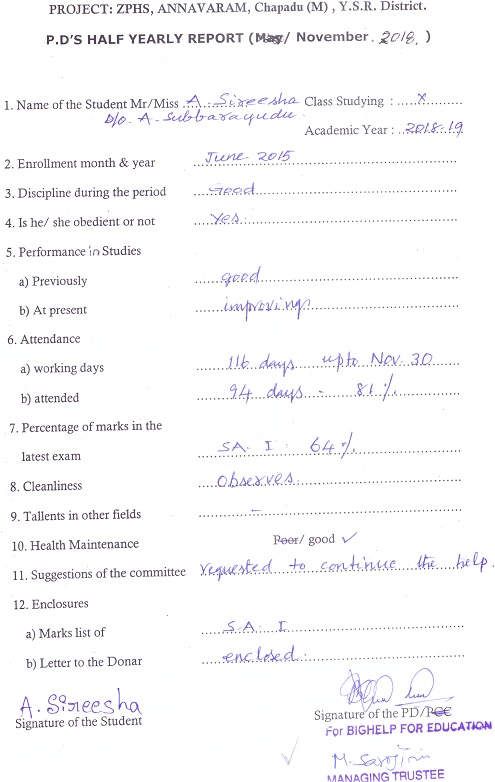 PROJECT: ZPHS, ANNAVARAM, Chapadu (M) , Y.S.R. District.
P.D'S HALF YEARLY REPORT (May/ November. 2018, )
1. Name of the Student Mr/Miss A. Sireesha Class Studying : X
D/o. A. Subbarayudu. Academic Year : 2018-19
2. Enrollment month & year June 2015
3. Discipline during the period Good
4. Is he/ she obedient or not Yes.
5. Performance in Studies
a) Previously good
b) At present improving
6. Attendance
a) working days 116 days upto Nov. 30
b) attended 94 days - 81 %
7. Percentage of marks in the
latest exam SA. I . 64 %
8. Cleanliness Observes.
9. Tallents in other fields -
10. Health Maintenance Poor/ good ✓
11. Suggestions of the committee requested to continue the help.
12. Enclosures
a) Marks list of S.A. I
b) Letter to the Donar enclosed.
A. Sireesha
Signature of the Student
Signature of the PD/PCC
For BIGHELP FOR EDUCATION
M. Sarojini
MANAGING TRUSTEE